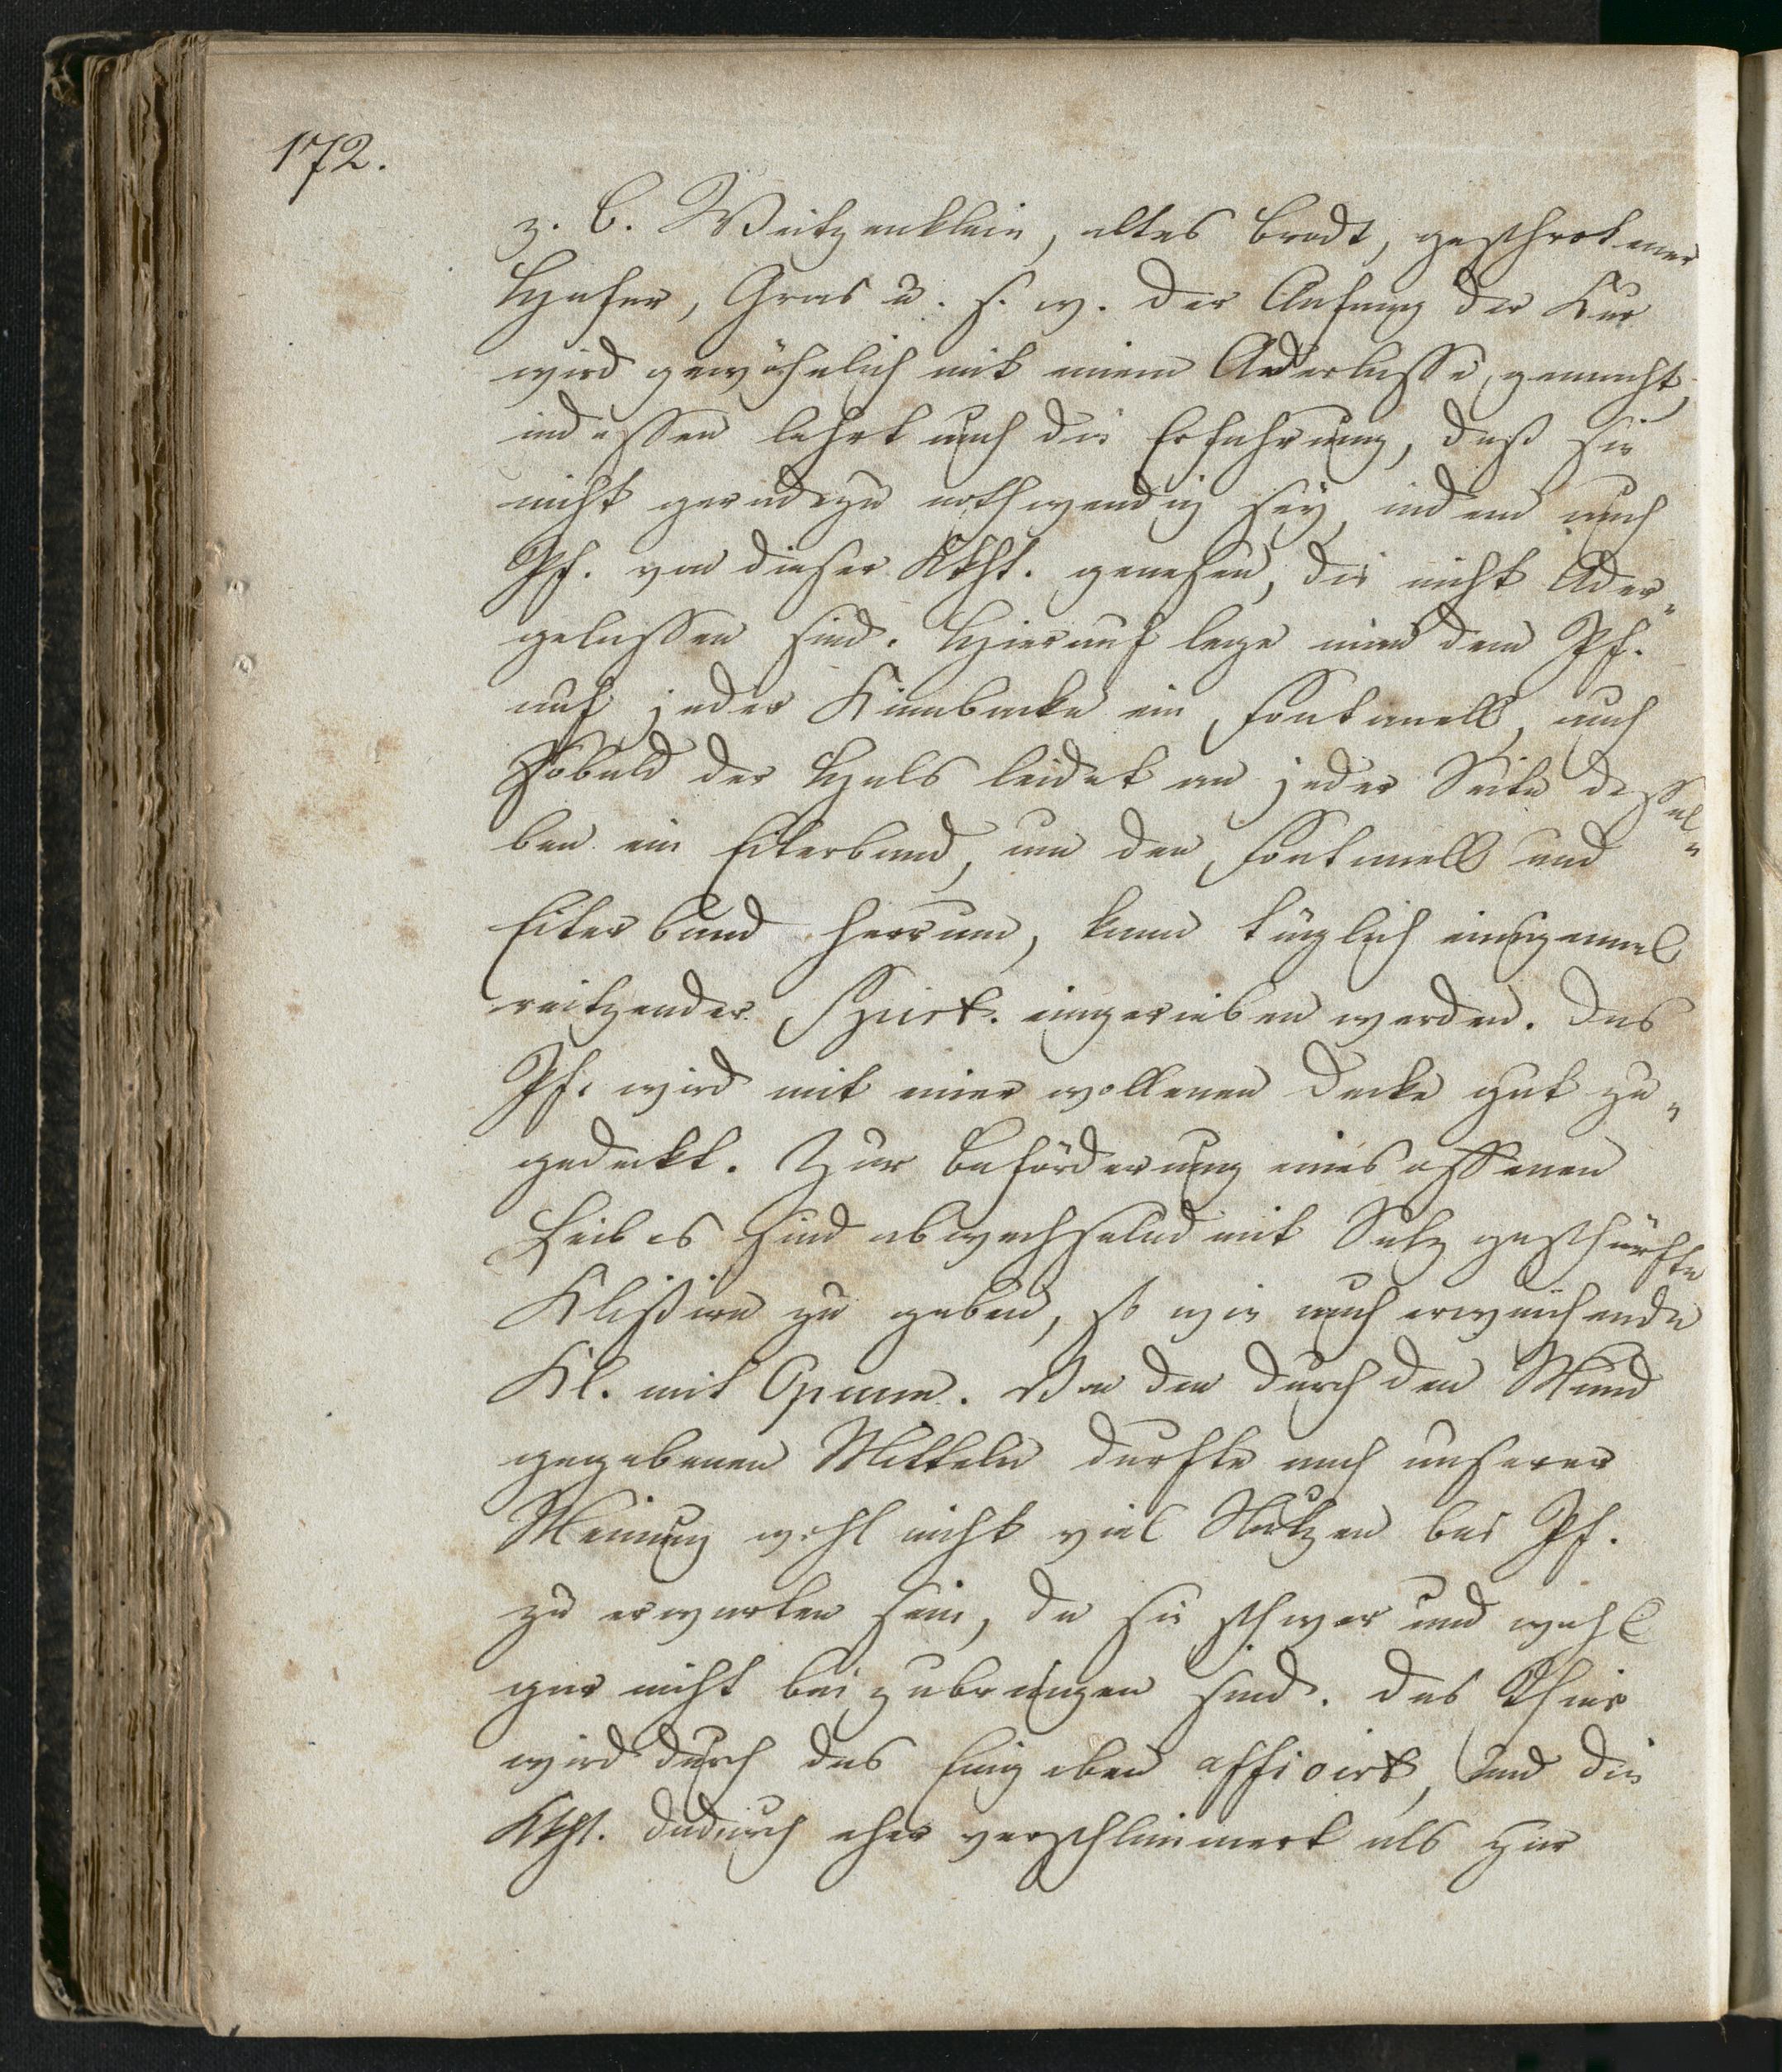 172.
z. B. Weitzenkleie, altes Brodt, geschrotener
Hafer, Gras u. s. w. Der Anfang der Kur
wird gewöhnlich mit einem Aderlasse gemacht,
indessen lehrt auch die Erfahrung, daß sie
nicht geradezu nothwendig sey, indem auch
Pf. von dieser Kkht. genesen, die nicht Ader„
gelassen sind. Hierauf lege man dem Pf.
auf jeder Kinnbacke ein Fontanell, auch
sobald der Hals leidet an jeder Seite dessel„
ben ein Eiterband, um den Fontanell und
Eiterband herrum, kann täglich einigemal
reitzender Spirt. eingerieben werden. Das
Pf. wird mit einer wollenen Decke gut zu„
gedeckt. Zur Beförderung eines offenen
Leibes sind abwechselnd mit Salz geschärfte
Klistire zu geben, so wie auch erweichende
Kl. mit Opium. Von den durch den Mund
gegebenen Mitteln durfte nach unserer
Meinung wohl nicht viel Nutzen bei Pf.
zu erwarten sein, da sie schwer und wohl
gar nicht beizubringen sind. Das Thier
wird durch das Eingeben afficirt, und die
Kkht. dadurch eher verschlimmert als zur